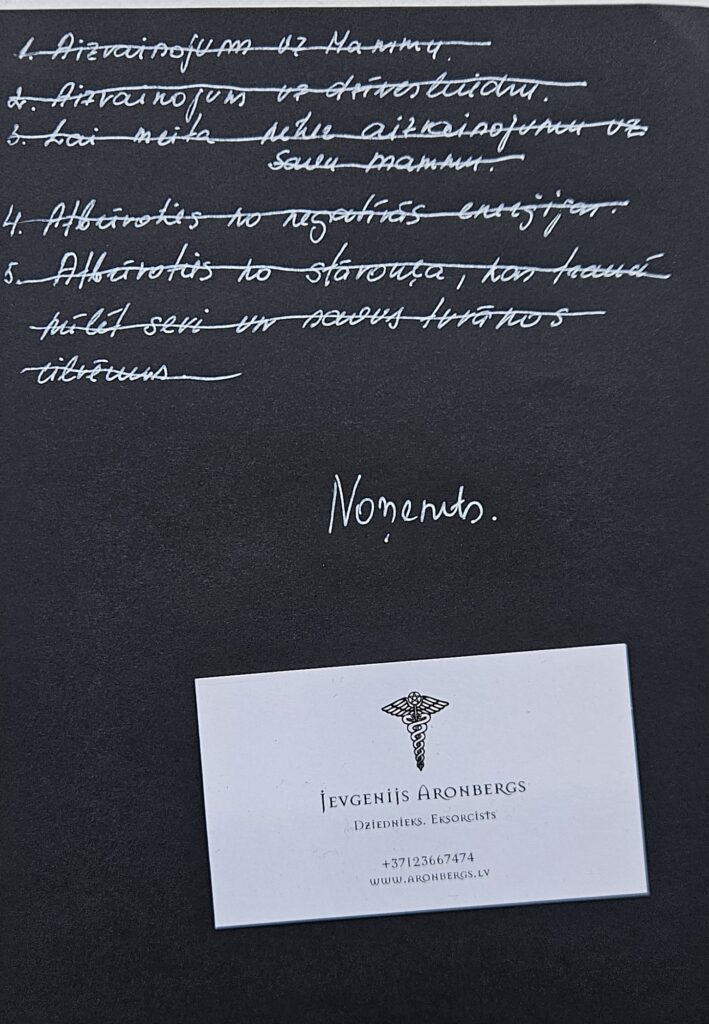 1. Aizvainojum uz Mammu.
2. Aizvainojum uz dzīvesbiedru.
3. Lai meita nebūz aizvainojumu uz
savu mammu.
4. Atbūroties no negatīvās enerģijas.
5. Atbūroties no stāvokļa, kas traucē
mīlēt sevi un savus tuvākos
cilvēkus.
Noņemts.
Jevgenijs Aronbergs
Dziednieks. Eksorcists
+37123667474
www.aronbergs.lv